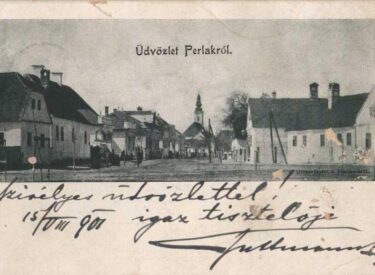 Üdvözlet Perlakról.
szivélyes üdvözlettel
15/VIII 901 igaz tisztelője
Guttmann